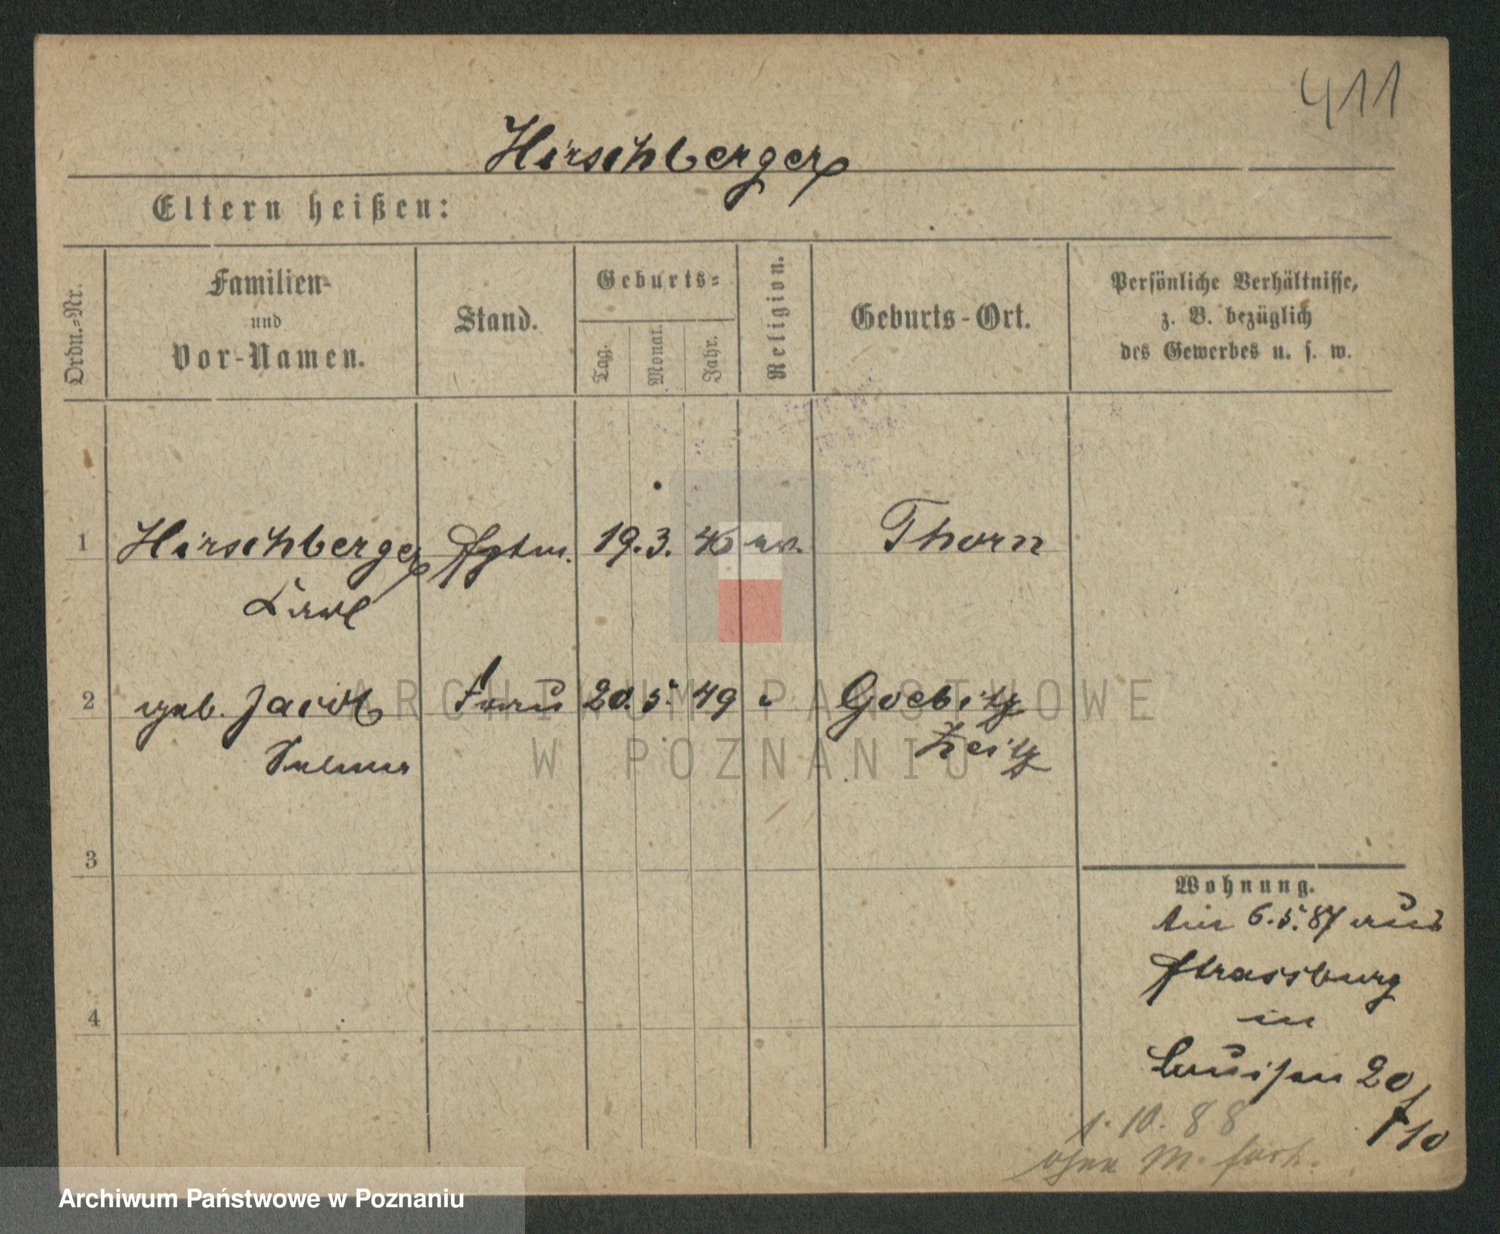 411
Hirschberger
Eltern heißen:
Ordn.-Nr.
Familien-
und
Vor-Namen.
Stand.
Geburts-
Tag.
Monat.
Jahr.
Religion.
Geburts-Ort.
Persönliche Verhältnisse,
z. B. bezüglich
des Gewerbes u. s. w.
1 Hirschberger 19. 3. 46 ev. Thorn
Karl
2 geb. Jacob Frau 20. 5. 49 Goebitz
Selma Zeitz
3
4
Wohnung.
Am 6.5.87 aus
Strassburg
in
Louisen 20
1. 10. 88
ohne M. fort.
ARCHIWUM PAŃSTWOWE
W POZNANIU
Archiwum Państwowe w Poznaniu